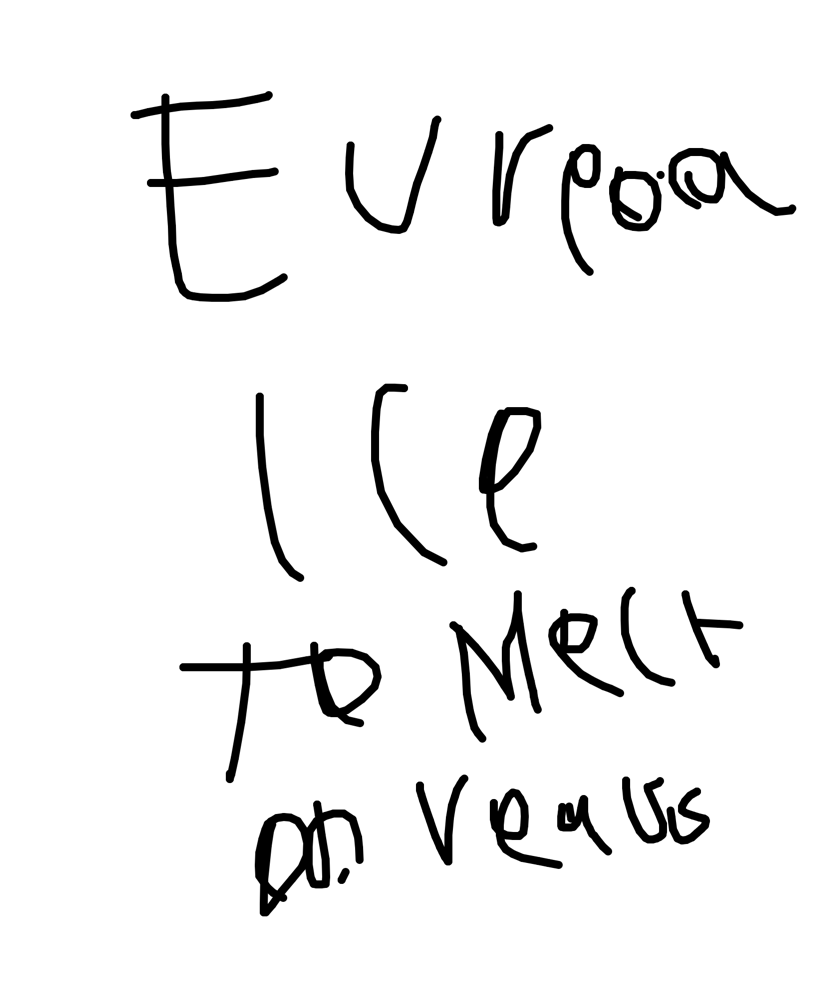 Eurpoa
Ice
To Melt
on Venus